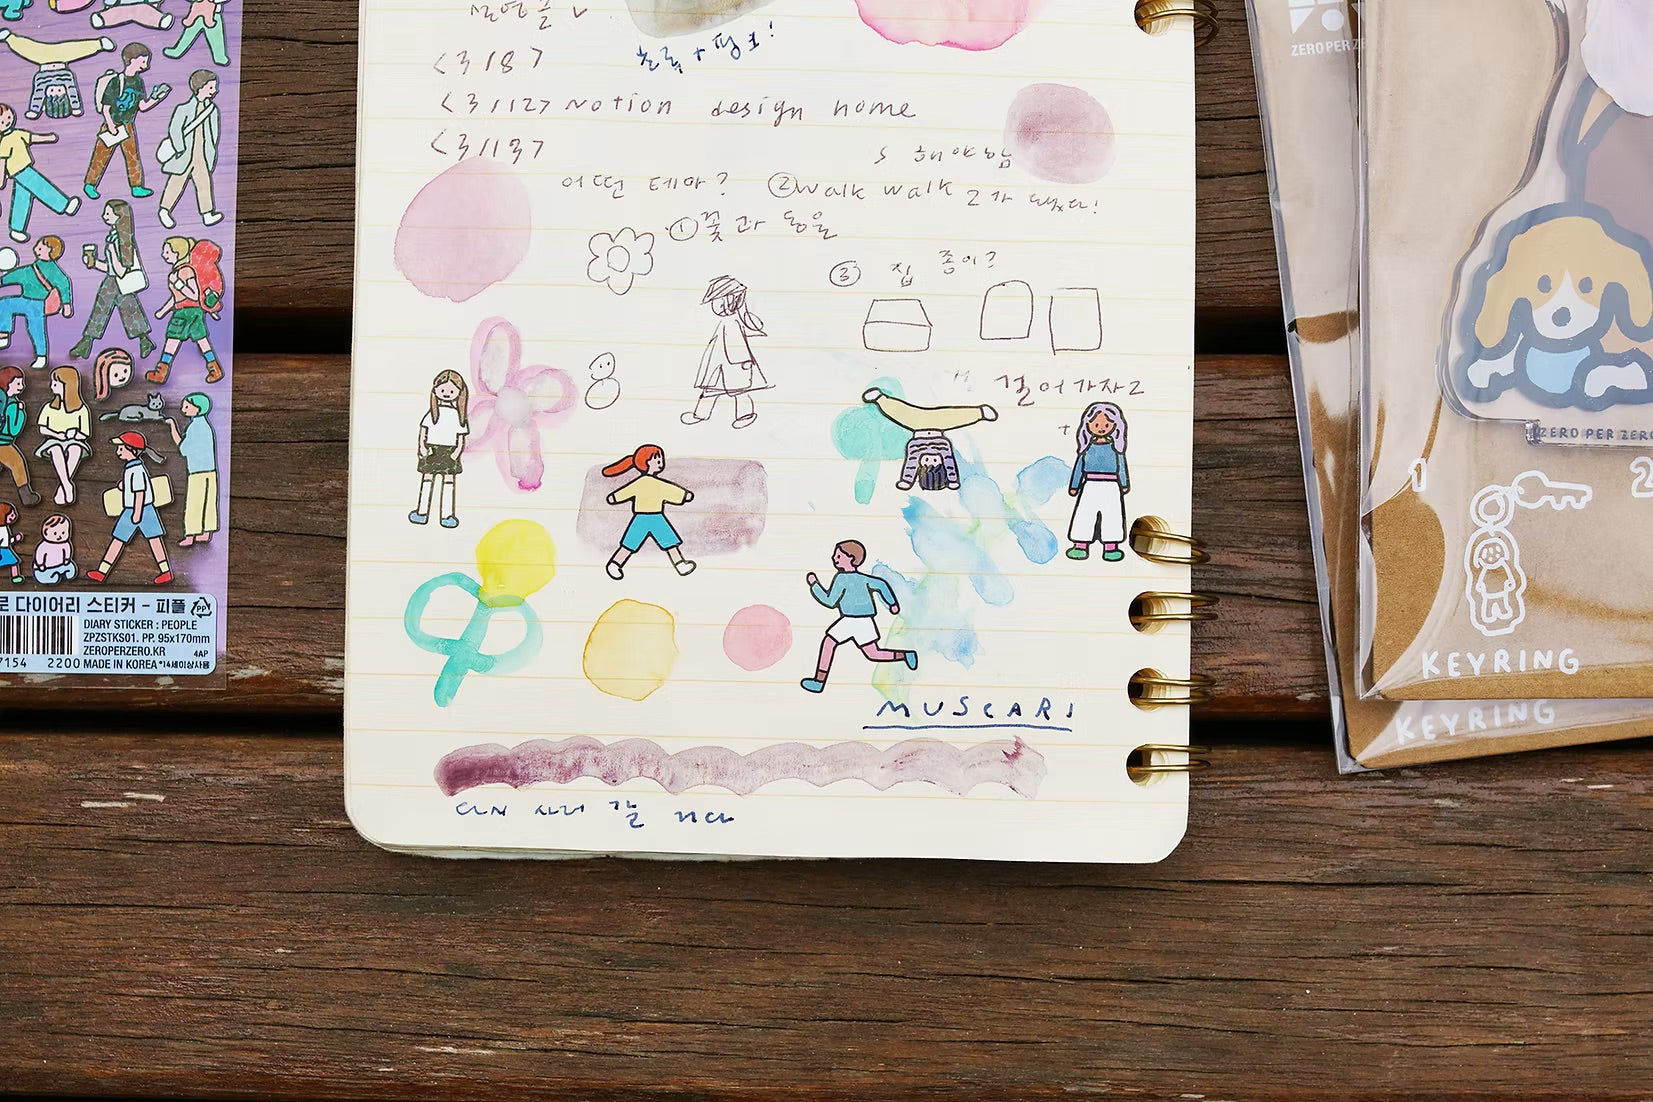 초록 + 핑크!
<3/8>
<3/12> Notion design home
<3/13>
해야함
어떤 테마? ② walk walk 2가 됐다!
① 꽃과 동물
③ 집 종이?
걸어가자 2
MUSCARI
다시 사러 갈 거다
로 다이어리 스티커 - 피플
PP
DIARY STICKER : PEOPLE
ZPZSTKS01. PP. 95x170mm
ZEROPERZERO.KR
4AP
7154 2200 MADE IN KOREA *14세이상사용
ZERO PER ZE
ZERO PER ZERO
1
2
KEYRING
KEYRING